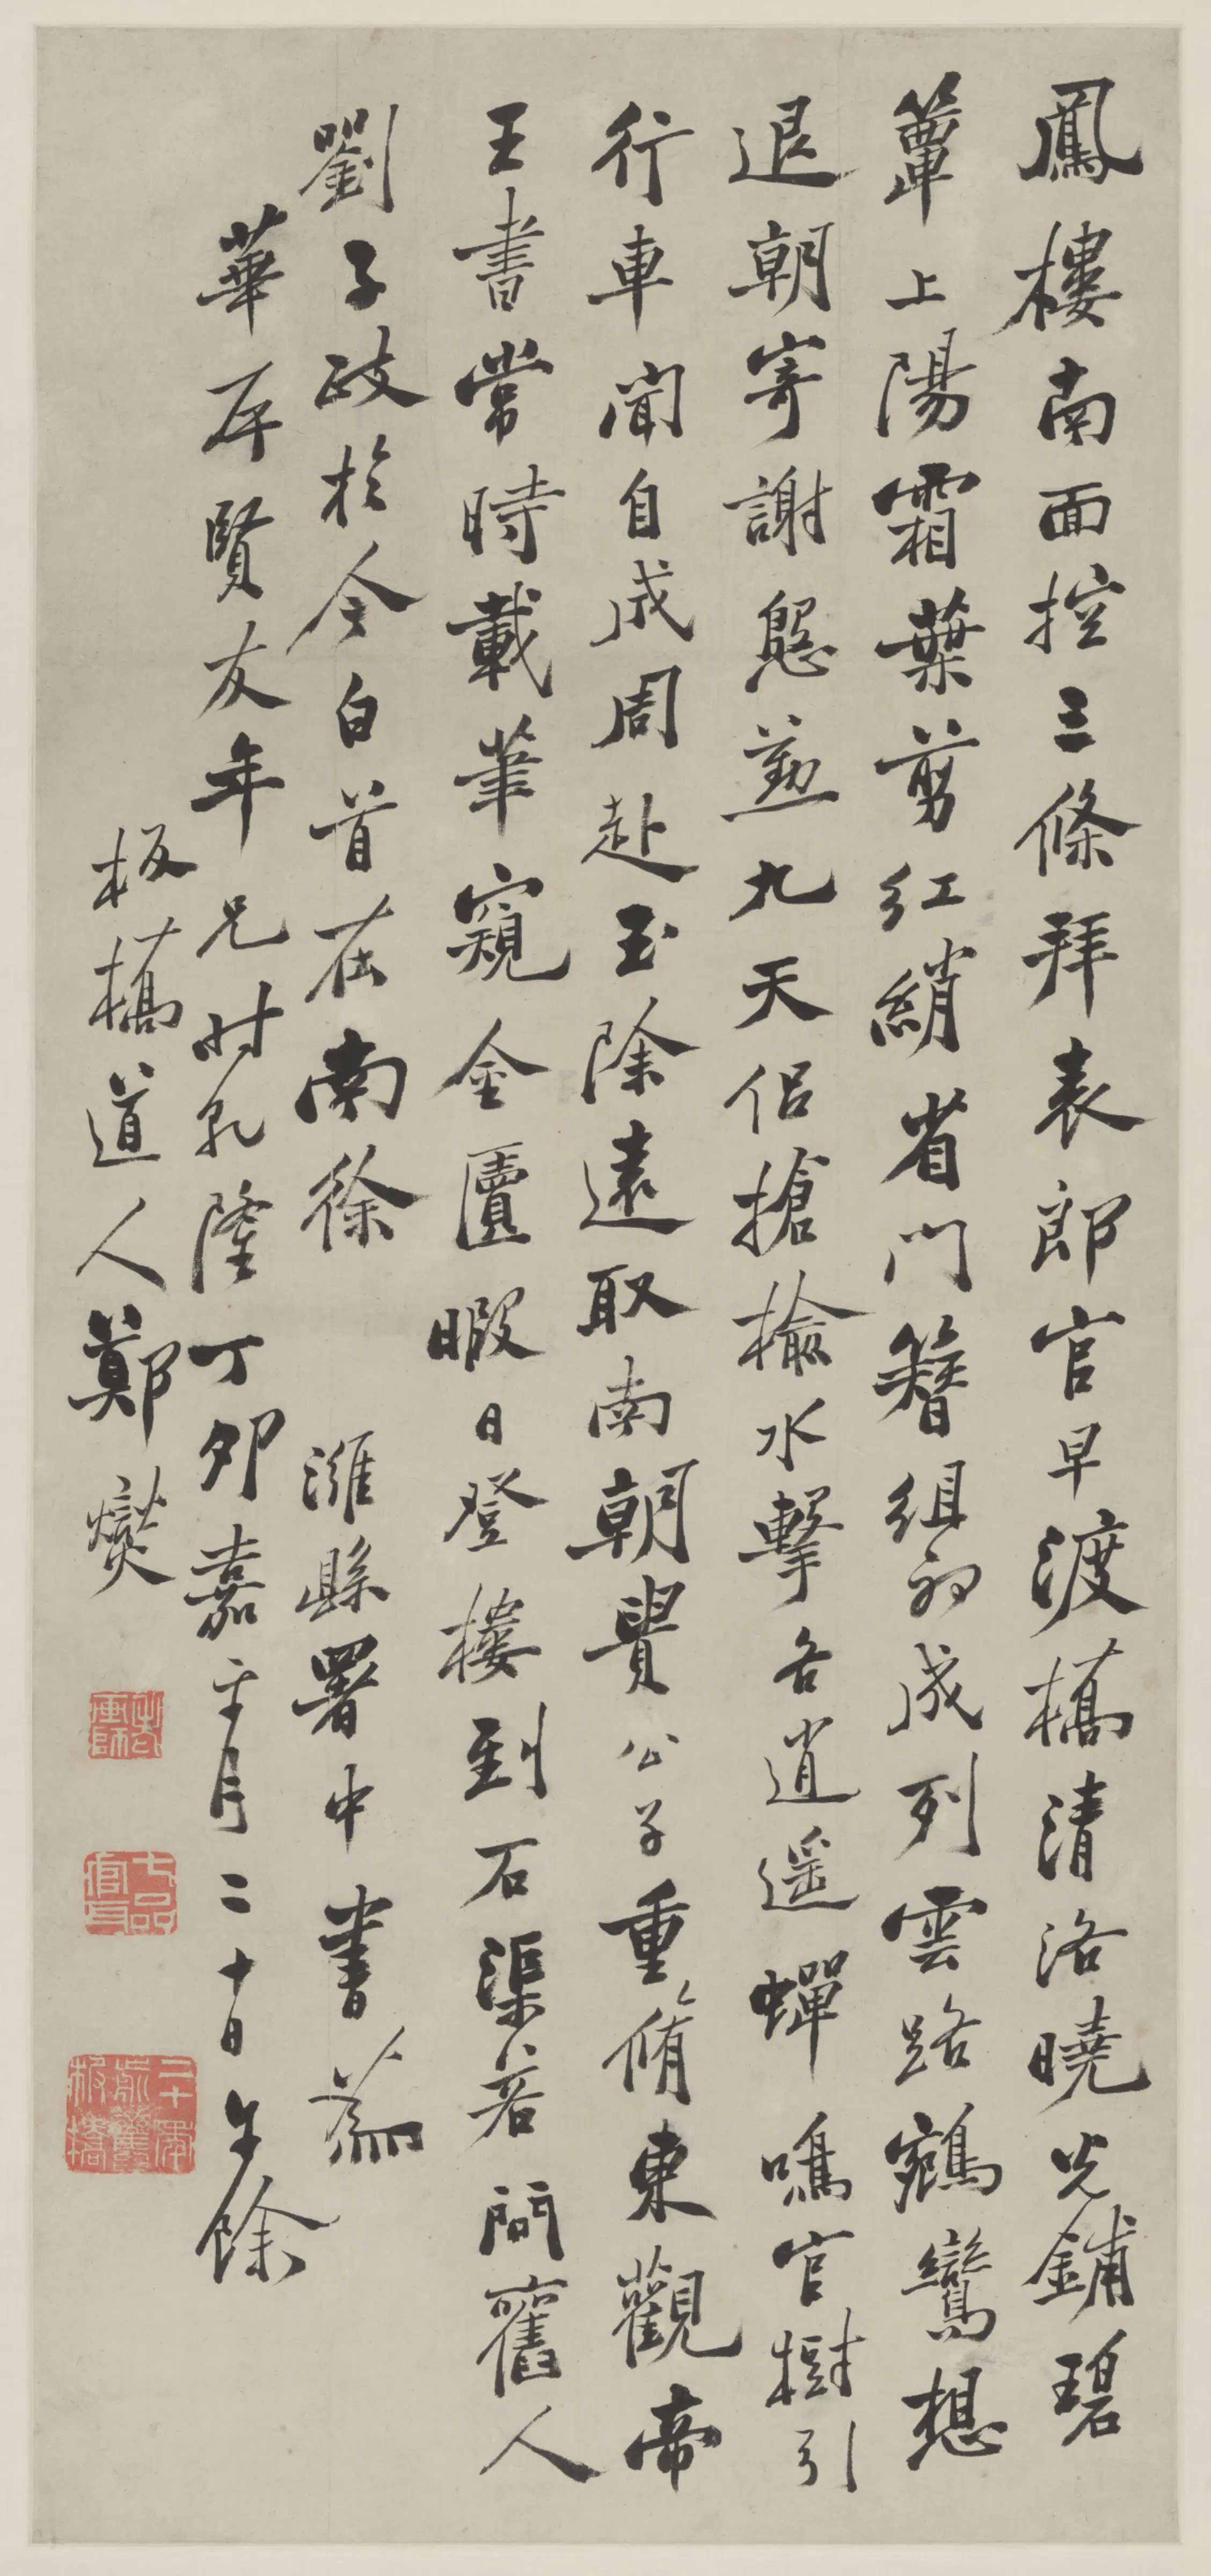 鳳樓南面控三條拜表郎官早渡橋清洛曉光鋪碧
簟上陽霜葉剪紅綃省門簪組初成列雲路鵷鸞想
退朝寄謝慇懃九天侶搶榆水擊各逍遥蟬鳴官樹引
行車聞自成周赴玉除遠取南朝貴公子重脩東觀帝
王書常時載筆窺金匱暇日登樓到石渠若問舊人
劉子政於今白首在南徐 濰縣署中書為
華平賢友年兄時乾隆丁卯嘉平月二十日午餘
板橋道人鄭燮
七品官耳
二十年前舊板橋